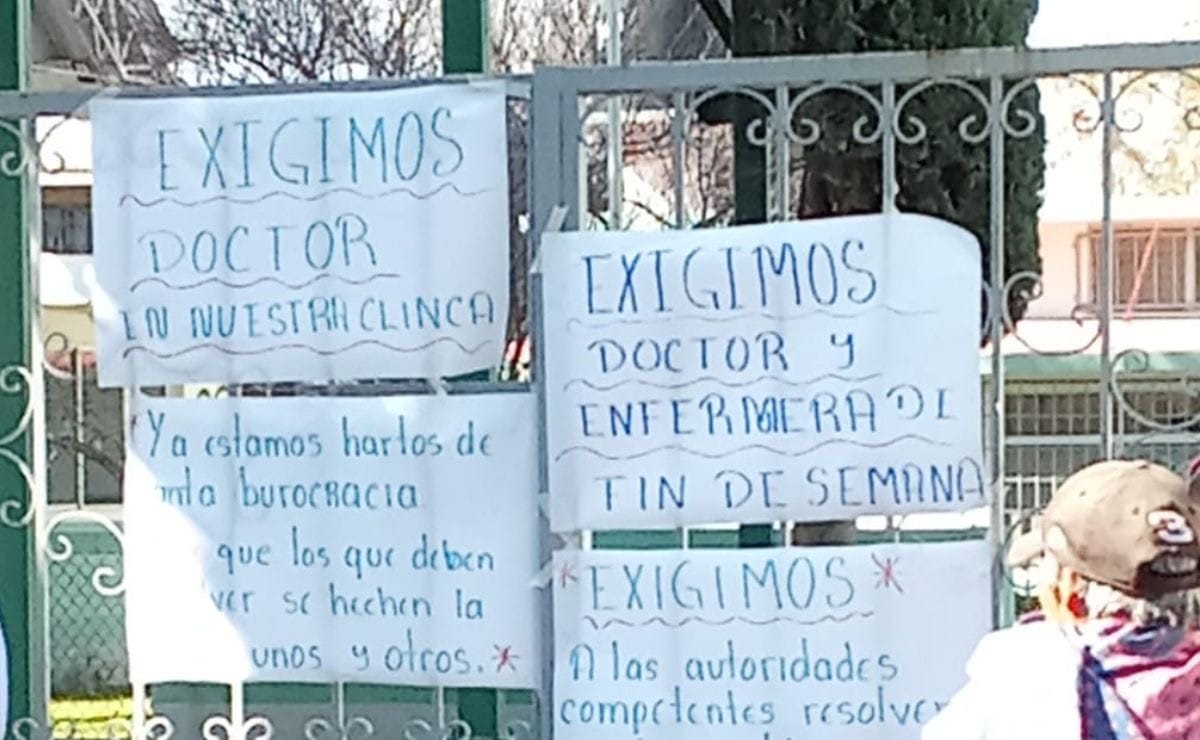 EXIGIMOS
DOCTOR
EN NUESTRA CLINCA
Ya estamos hartos de
burocracia
que los que deben
se hechen la
unos y otros.
EXIGIMOS
DOCTOR Y
ENFERMERA DE
FIN DE SEMANA
*EXIGIMOS*
A las autoridades
competentes